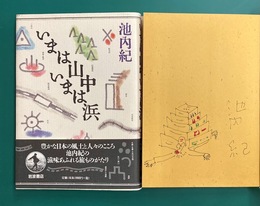 池内紀
いまは山中
いまは浜
豊かな日本の風土と人々のこころ
池内紀の
滋味あふれる旅ものがたり
岩波書店
池内紀